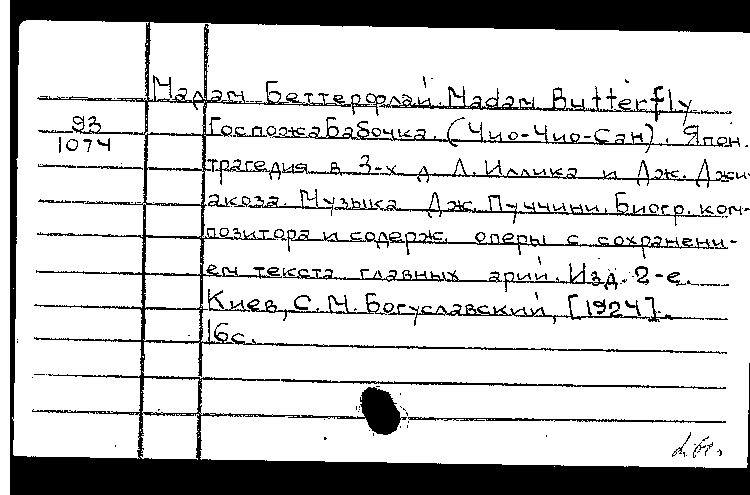 Мадам Беттерфлай. Madam Butterfly
93
1074
Госпожа Бабочка. (Чио-Чио-Сан). Япон.
трагедия в 3-х д. Л. Иллика и Дж. Джи-
акоза. Музыка Дж. Пуччини. Биогр. ком-
позитора и содерж. оперы с сохранени-
ем текста главных арий. Изд. 2-е.
Киев, С. М. Богуславский, [1924].
16с.